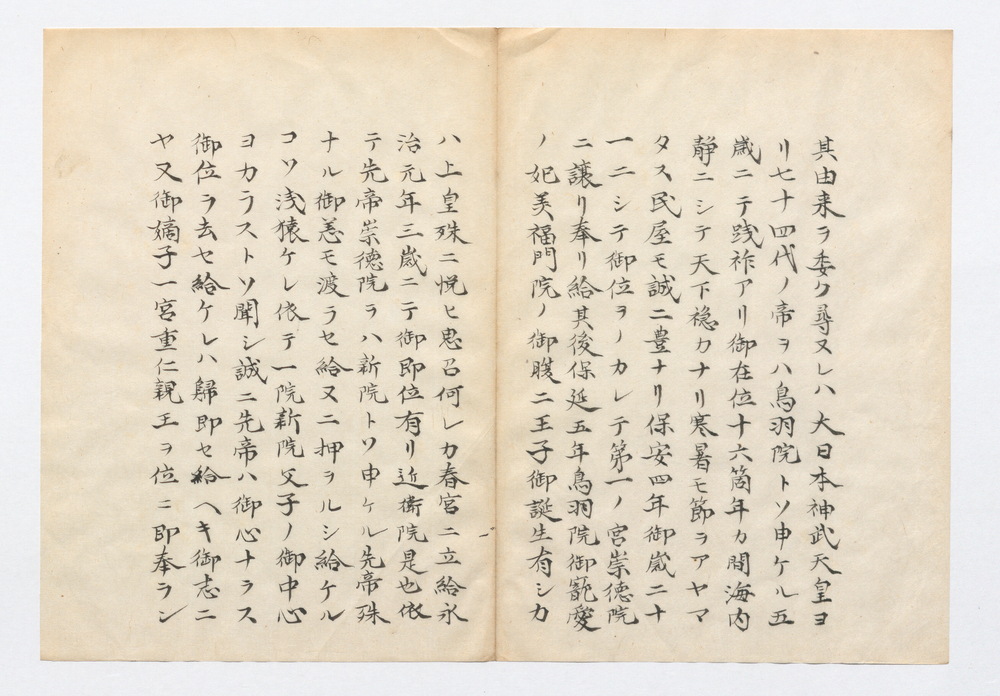 其由来ヲ委ク尋ヌレハ大日本神武天皇ヨ
リ七十四代ノ帝ヲハ鳥羽院トソ申ケル五
歳ニテ践祚アリ御在位十六箇年カ間海内
静ニシテ天下穏カナリ寒暑モ節ヲアヤマ
タス民屋モ誠ニ豊ナリ保安四年御歳二十
一ニシテ御位ヲノカレテ第一ノ宮崇徳院
ニ譲リ奉リ給其後保延五年鳥羽院御寵愛
ノ妃美福門院ノ御腹ニ王子御誕生有シカ
ハ上皇殊ニ悦ヒ思召何レカ春宮ニ立給永
治元年三歳ニテ御即位有リ近衛院是也依
テ先帝崇徳院ヲハ新院トソ申ケル先帝殊
ナル御恙モ渡ラセ給ヌニ押ヲルシ給ケル
コソ浅猿ケレ依テ一院新院父子ノ御中心
ヨカラストソ聞シ誠ニ先帝ハ御心ナラス
御位ヲ去セ給ケレハ歸即セ給ヘキ御志ニ
ヤ又御嫡子一宮重仁親王ヲ位ニ即奉ラン